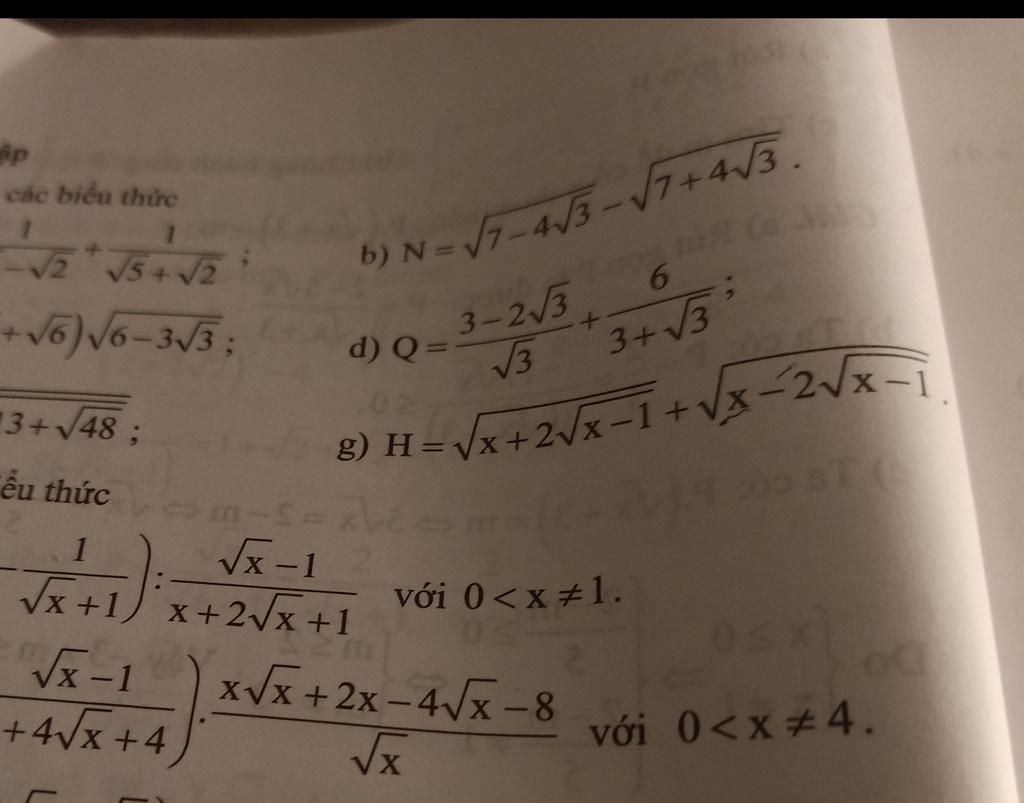 ập
các biểu thức
1/(-√2) + 1/(√5+√2) ; b) N = √(7-4√3) - √(7+4√3) .
+√6)√(6-3√3) ; d) Q = (3-2√3)/√3 + 6/(3+√3) ;
3+√48 ; g) H = √(x+2√(x-1)) + √(x-2√(x-1)) .
ểu thức
- 1/(√x+1)) : (√x-1)/(x+2√x+1) với 0 < x ≠ 1.
(√x-1)/(+4√x+4)) . (x√x+2x-4√x-8)/√x với 0 < x ≠ 4.